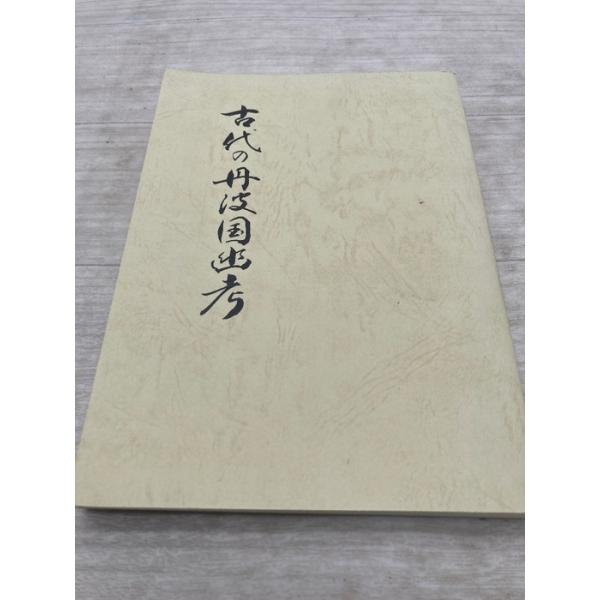 古代の丹波国幽考